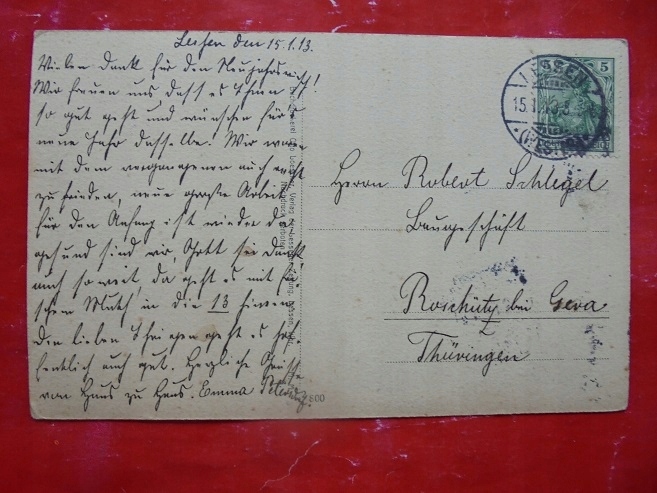 Lessen den 15.1.13.
Vielen Dank für den Neujahrswunsch!
Wir freuen uns dass es Ihnen
so gut geht und wünschen fürs
neue Jahr dasselbe. Wir waren
mit dem vergangenen auch recht
zufrieden, neue große Arbeit
für den Anfang ist wieder da
gesund sind wir, Gott sei Dank
auch so weit da geht es mit fri-
schem Muth in die 13 hinein.
Den lieben Ihrigen geht es hof-
fentlich auch gut. Herzliche Grüsse
von Haus zu Haus. Emma
Herrn Robert Schlegel
Baugeschäft
Roschütz bei Gera
Thüringen
LESSEN
15.1.13
5
800